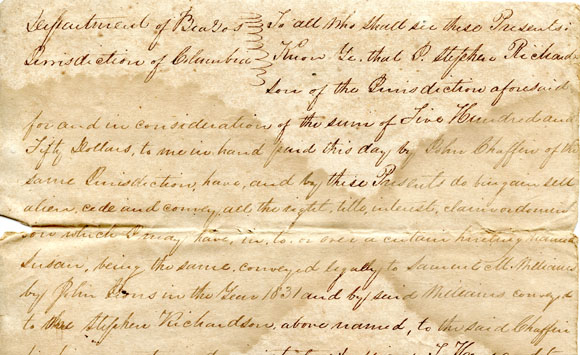 Department of Brazos
Jurisdiction of Columbia
To all who shall see these Presents:
Know Ye. that I. Stephen Richard-
son of the Jurisdiction aforesaid
for and in consideration of the sum of Five Hundred and
Fifty Dollars, to me in hand paid this day by John Chaffin of the
same Jurisdiction, have, and by these Presents do bargain sell
alien, cede and convey, all the right, title, interest, claim or domin
ion which I may have, in, to, or over a certain named
Susan, being the same conveyed legally to Samuel M. Williams
by John in the Year 1831 and by said Williams conveyed
to Stephen Richardson, above named, to the said Chaffin